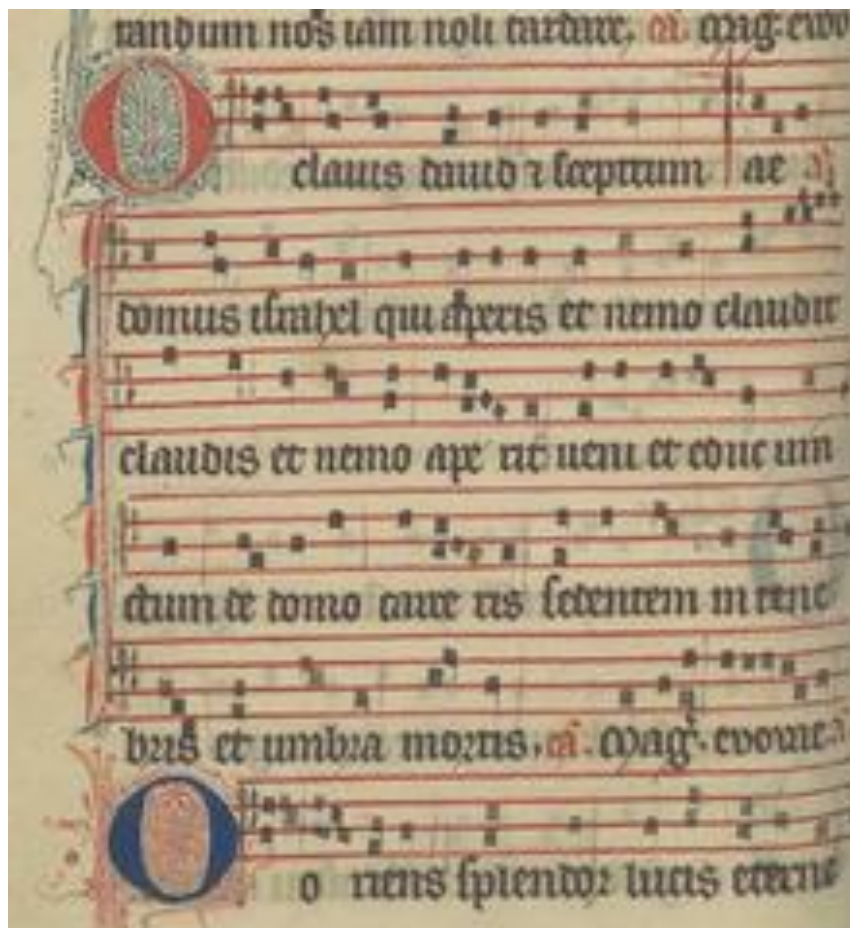 randum nos iam noli tardare. añ. mag: evo
O clauis dauid ⁊ sceptrum ae
domus israhel qui aperis et nemo claudit
claudis et nemo ape rit ueni et educ uin
ctum de domo carce ris sedentem in tene
bris et umbra mortis. añ. Mag. evovae.
O o riens splendor lucis eterne